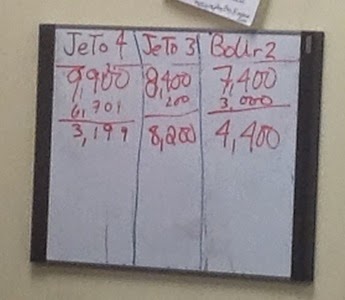 JeTo 4 JeTo 3 BoUr 2
9,900 8,400 7,400
6,701 200 3,000
3,199 8,200 4,400